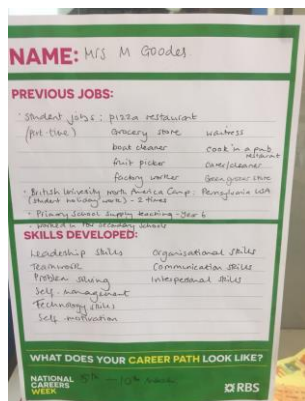 NAME: Mrs M Goodes
PREVIOUS JOBS:
Student jobs: pizza restaurant
(part-time) Grocery store waitress
boat cleaner cook in a pub restaurant
fruit picker carer/cleaner
factory worker Green grocer store
British University North America Camp: Pennsylvania USA
(student holiday work) - 2 times
Primary School supply teaching - Year 6
worked in secondary schools
SKILLS DEVELOPED:
Leadership skills Organisational skills
Teamwork Communication skills
Problem solving Interpersonal skills
Self-management
Technology skills
Self motivation
WHAT DOES YOUR CAREER PATH LOOK LIKE?
NATIONAL
CAREERS
WEEK
5th - 10th March
RBS